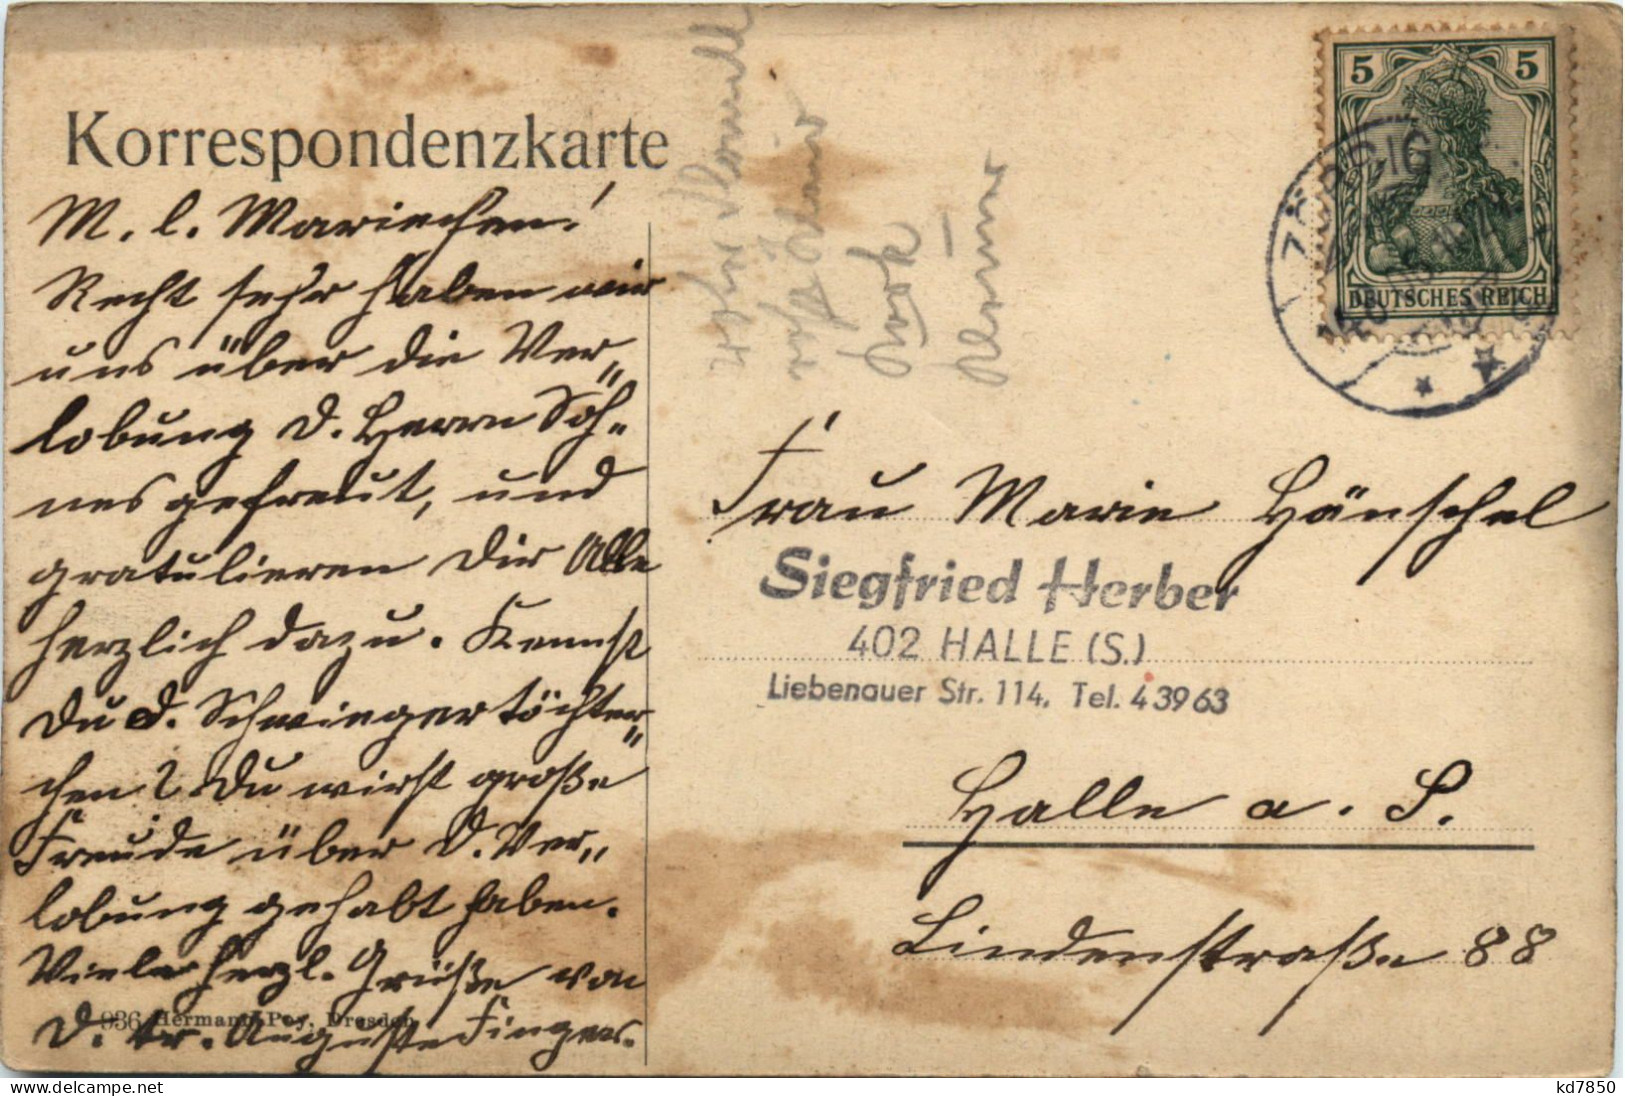 Korrespondenzkarte
M. l. Mariechen!
Recht sehr haben wir
uns über die Ver„
lobung d. Herrn Soh„
nes gefreut, und
gratulieren Dir Alle
herzlich dazu. Kennst
Du d. Schwiegertöchter„
chen? Du wirst große
Freude über d. Ver„
lobung gehabt haben.
Viele herzl. Grüße von
D. tr. Auguste Fingers.
936 Hermann Poy, Dresden
5 5
DEUTSCHES REICH
ZÖRBIG
Frau Marie Hänschel
Siegfried Herber
402 HALLE (S.)
Liebenauer Str. 114, Tel. 43963
Halle a. S.
Lindenstraße 88
kd7850